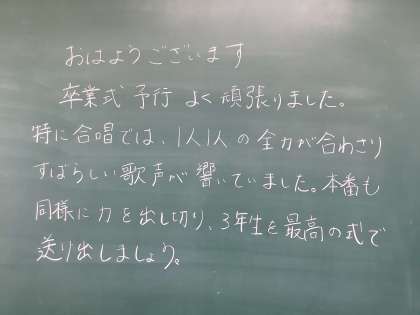 おはようございます
卒業式予行 よく頑張りました。
特に合唱では、1人1人の全力が合わさり
すばらしい歌声が響いていました。本番も
同様に力を出し切り、3年生を最高の式で
送り出しましょう。